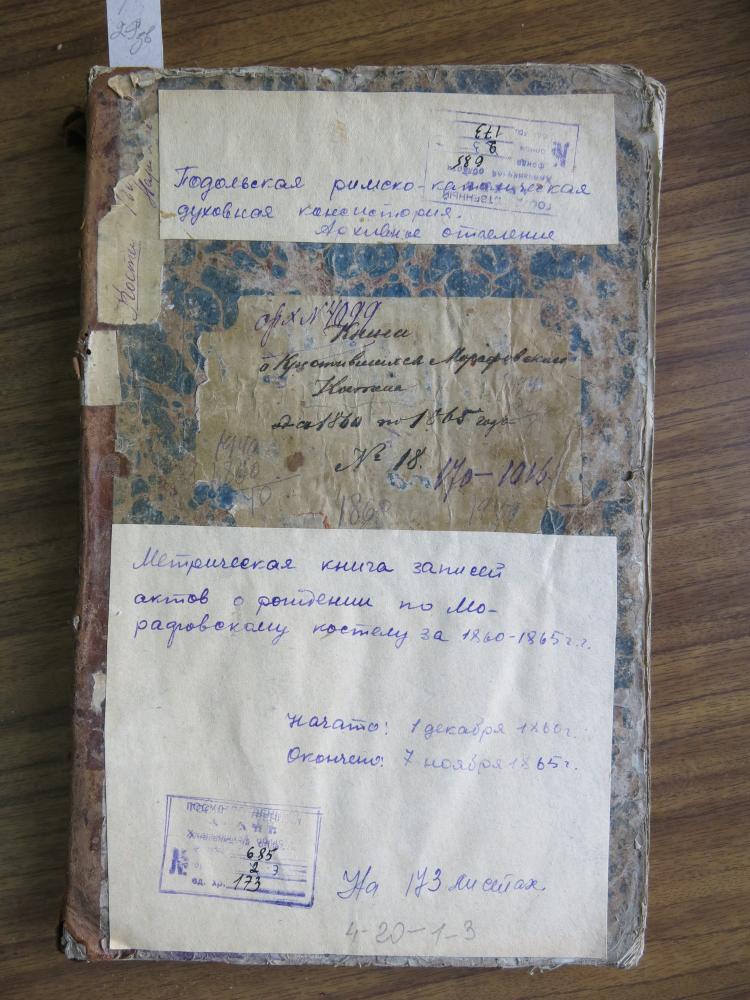 29зв
173
2 3
685
Подольская римско-католическая
духовная консистория.
Архивное отделение
Костел
арх №4099
Книга
о Крестившихся Морафовского
Костела
са 1860 по 1865 года
№ 18.
170-1016.
1860
Метрическая книга записей
актов о рождении по Мо-
рафовскому костелу за 1860-1865г.г.
Начато: 1 декабря 1860г.
Окончено: 7 ноября 1865г.
№
685
2 э
ед. хр. 173
На 173 листах.
4-20-1-3